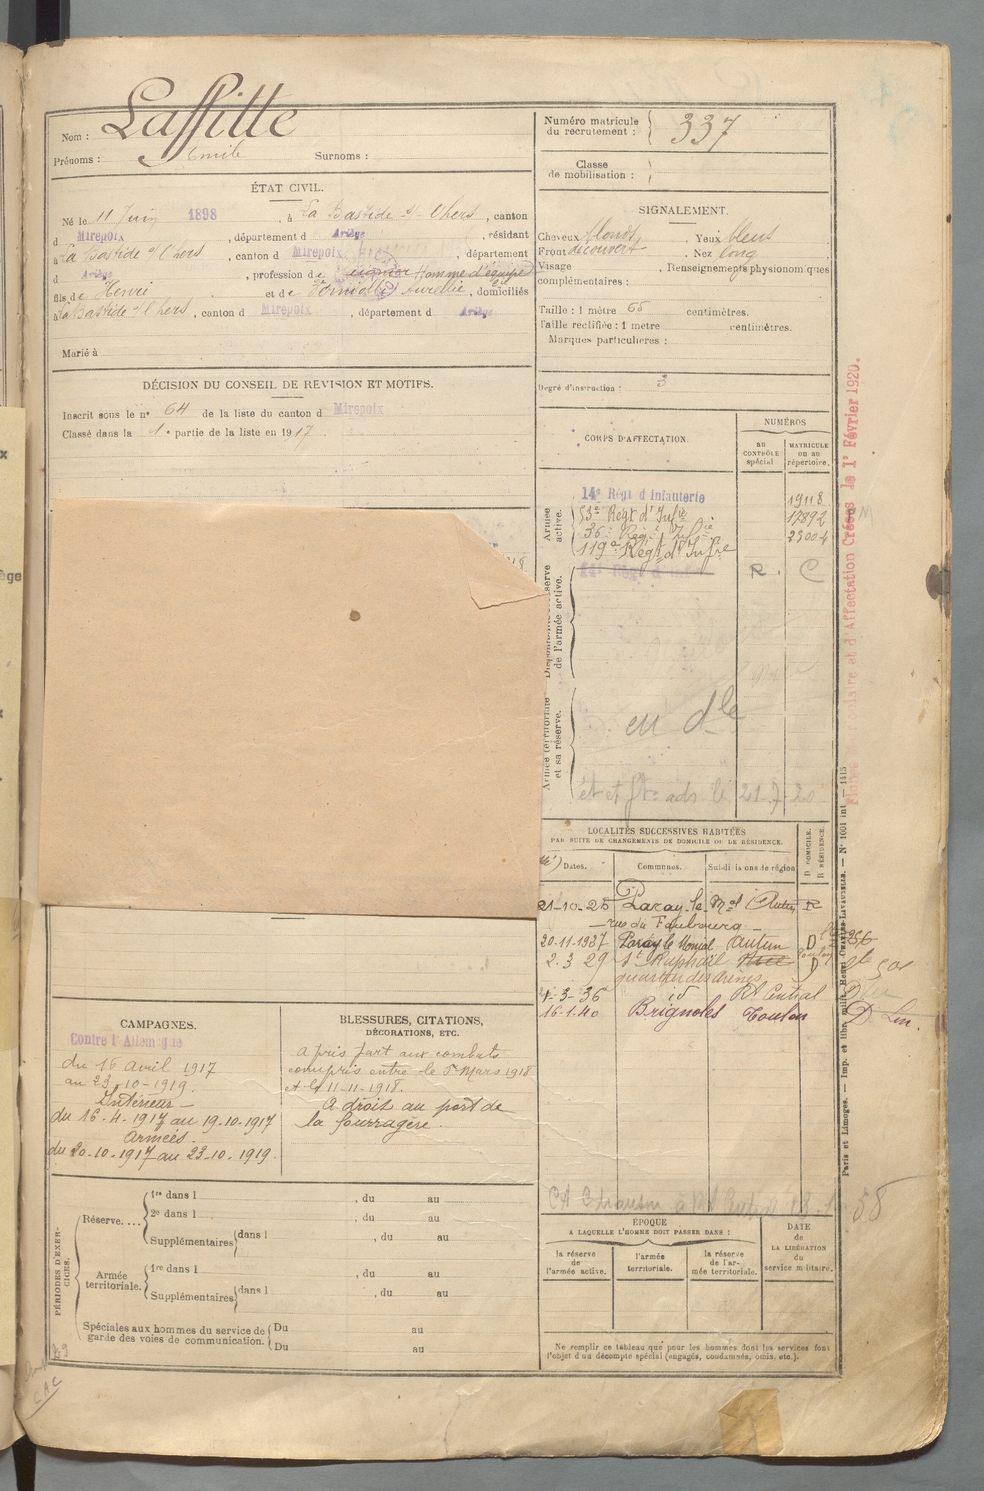 Nom : Laffitte
Prénoms : Emile Surnoms :
Numéro matricule du recrutement : 337
Classe de mobilisation :
ÉTAT CIVIL.
Né le 11 Juin 1898, à La Bastide s/ l'hers, canton
d Mirepoix, département d Ariège, résidant
à La Bastide s/ l'hers, canton d Mirepoix, département
d Ariège, profession de homme d'équipe
fils de Henri et de Aurélie, domiciliés
à La Bastide s/ l'hers, canton d Mirepoix, département d Ariège
Marié à
DÉCISION DU CONSEIL DE REVISION ET MOTIFS.
Inscrit sous le n° 64 de la liste du canton d Mirepoix
Classé dans la 1e partie de la liste en 1917
SIGNALEMENT.
Cheveux blonds. Yeux bleus
Front découvert. Nez long
Visage . Renseignements physionomiques
complémentaires :
Taille : 1 mètre 65 centimètres.
Taille rectifiée : 1 mètre centimètres.
Marques particulières :
Degré d'instruction : 3
CORPS D'AFFECTATION.
NUMÉROS
AU CONTRÔLE spécial
MATRICULE ou au répertoire.
Armée active.
14e Régt d'Infanterie 19118
53e Régt d'Infie 12892
36e Régt Infie 23004
119e Régt d'Infie
R. C
de l'armée active.
Armée territoriale et sa réserve.
en dle
21-7-20
LOCALITÉS SUCCESSIVES HABITÉES
PAR SUITE DE CHANGEMENTS DE DOMICILE OU DE RÉSIDENCE.
Dates. Communes. Subdivisions de région
D. DOMICILE. R. RÉSIDENCE.
21-10-26 Paray-le-Mal Autun R
rue du Faubourg
20-11-1927 Paray le Monial Autun D
2.3 29 St Raphaël D
4-3-36 id Rt Central D
16-1-40 Brignoles Toulon D
CAMPAGNES.
Contre l'Allemagne
du 16 Avril 1917
au 23-10-1919.
Intérieur
du 16-4-1917 au 19-10-1917
Armées
du 20-10-1917 au 23-10-1919.
BLESSURES, CITATIONS,
DÉCORATIONS, ETC.
A pris part aux combats
compris entre le 5 Mars 1918
et le 11-11-1918.
A droit au port de
la fourragère.
PÉRIODES D'EXERCICES.
Réserve.... 1re dans l , du au
2e dans l , du au
Supplémentaires dans l , du au
Armée territoriale. 1re dans l , du au
Supplémentaires dans l , du au
Spéciales aux hommes du service de garde des voies de communication. Du au
Du au
ÉPOQUE
A LAQUELLE L'HOMME DOIT PASSER DANS :
la réserve de l'armée active.
l'armée territoriale.
la réserve de l'armée territoriale.
DATE de LA LIBÉRATION du service militaire.
Ne remplir ce tableau que pour les hommes dont les services font
l'objet d'un décompte spécial (engagés, condamnés, omis, etc.).
d'Affectation Créées le 1r Février 1920.
Paris et Limoges. — Imp. et libr. milit. Henri CHARLES-LAVAUZELLE. — N° 1601 int — 1415
CAC